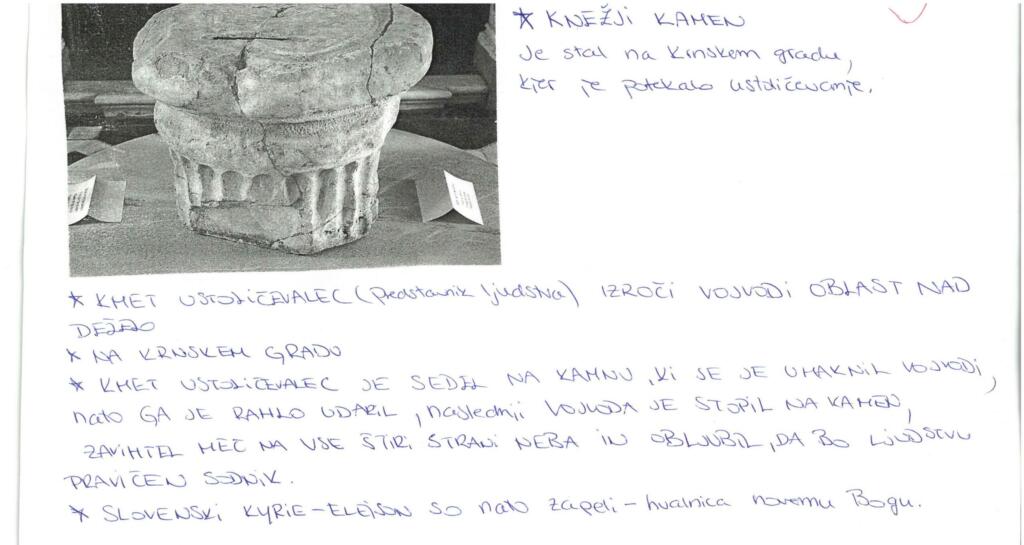 * KNEŽJI KAMEN
Je stal na Krnskem gradu,
kjer je potekalo ustoličevanje.
* KMET USTOLIČEVALEC (Predstavnik ljudstva) IZROČI VOJVODI OBLAST NAD
DEŽELO
* NA KRNSKEM GRADU
* KMET USTOLIČEVALEC JE SEDEL NA KAMNU, KI SE JE UMAKNIL VOJVODI,
nato GA JE RAHLO UDARIL, naslednji VOJVODA JE STOPIL NA KAMEN,
ZAVIHTEL MEČ NA VSE ŠTIRI STRANI NEBA IN OBLJUBIL, DA BO LJUDSTVU
PRAVIČEN SODNIK.
* SLOVENSKI KYRIE-ELEJSON so nato zapeli - hvalnica novemu Bogu.